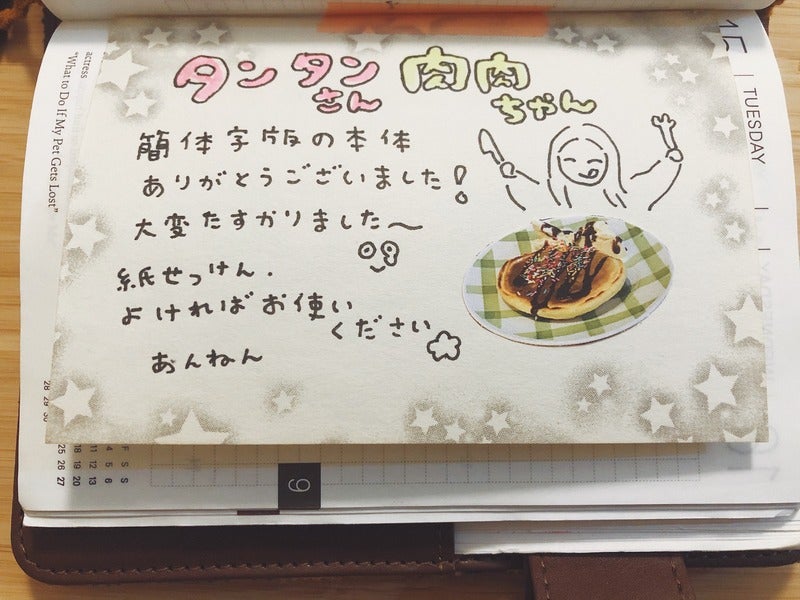 タンタン 肉肉
さん ちゃん
簡体字版の本体
ありがとうございました!
大変たすかりました〜
紙せっけん.
よければお使い
ください
あんねん
actress
"What to Do If My Pet Gets Lost"
TUESDAY
28
29
30
F S S
4 5 6
11 12 13
18 19 20
25 26 27
9